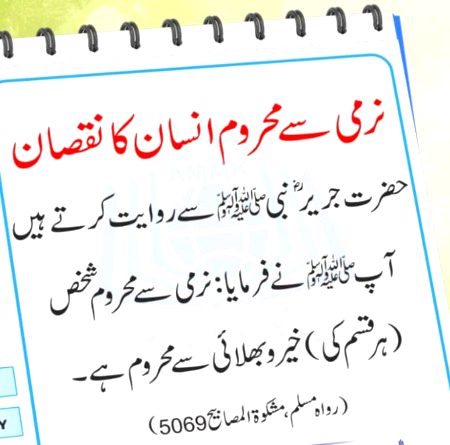 نرمی سے محروم انسان کا نقصان
حضرت جریرؓ نبی ﷺ سے روایت کرتے ہیں
آپ ﷺ نے فرمایا: نرمی سے محروم شخص
(ہر قسم کی) خیر و بھلائی سے محروم ہے۔
(رواہ مسلم، مشکوۃ المصابیح 5069)